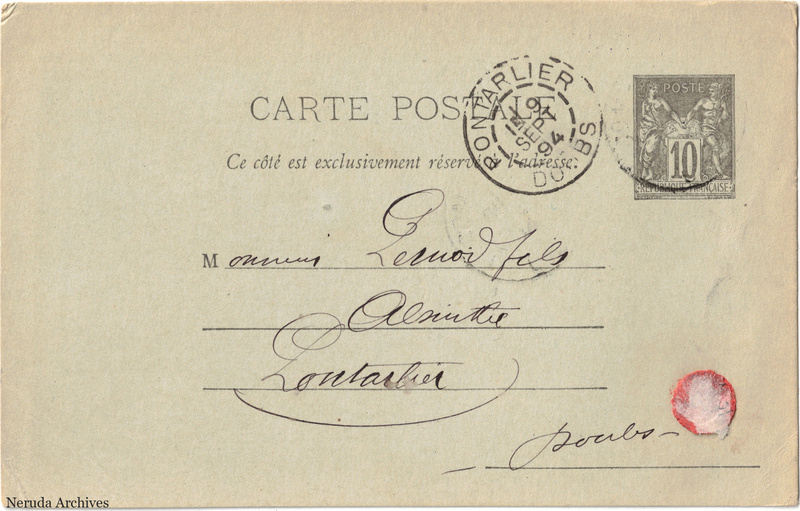 CARTE POSTALE
Ce côté est exclusivement réservé à l'adresse.
PONTARLIER
SEPT
94
DOUBS
POSTE
10
REPUBLIQUE FRANÇAISE
Monsieur Pernod fils
Absinthe
Pontarlier
Doubs
Neruda Archives